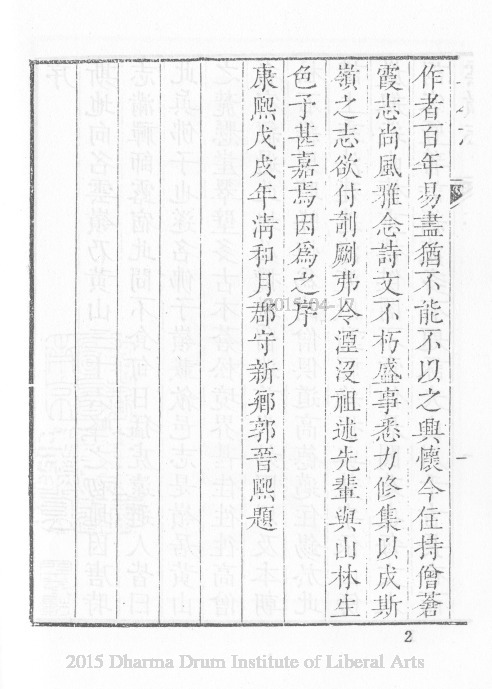 作者百年易盡猶不能不以之興懷今住持僧蒼
霞志尚風雅念詩文不朽盛事悉力修集以成斯
嶺之志欲付剞劂弗令湮沒祖述先輩與山林生
色予甚嘉焉因爲之序
康熙戊戌年淸和月郡守新鄉郭晉熙題
2015-04-17
2
2015 Dharma Drum Institute of Liberal Arts